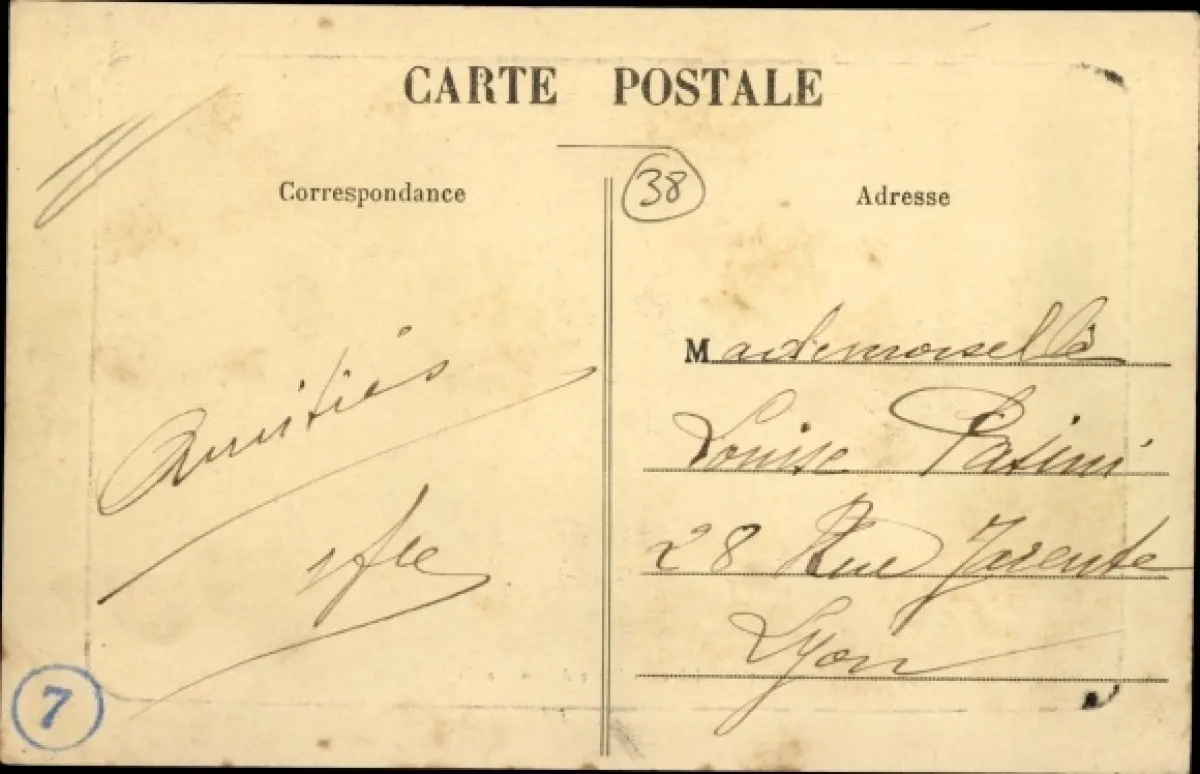 CARTE POSTALE
Correspondance
38
Adresse
Amitiés
Mademoiselle
Louise Patini
28 Rue Jarente
Lyon
7